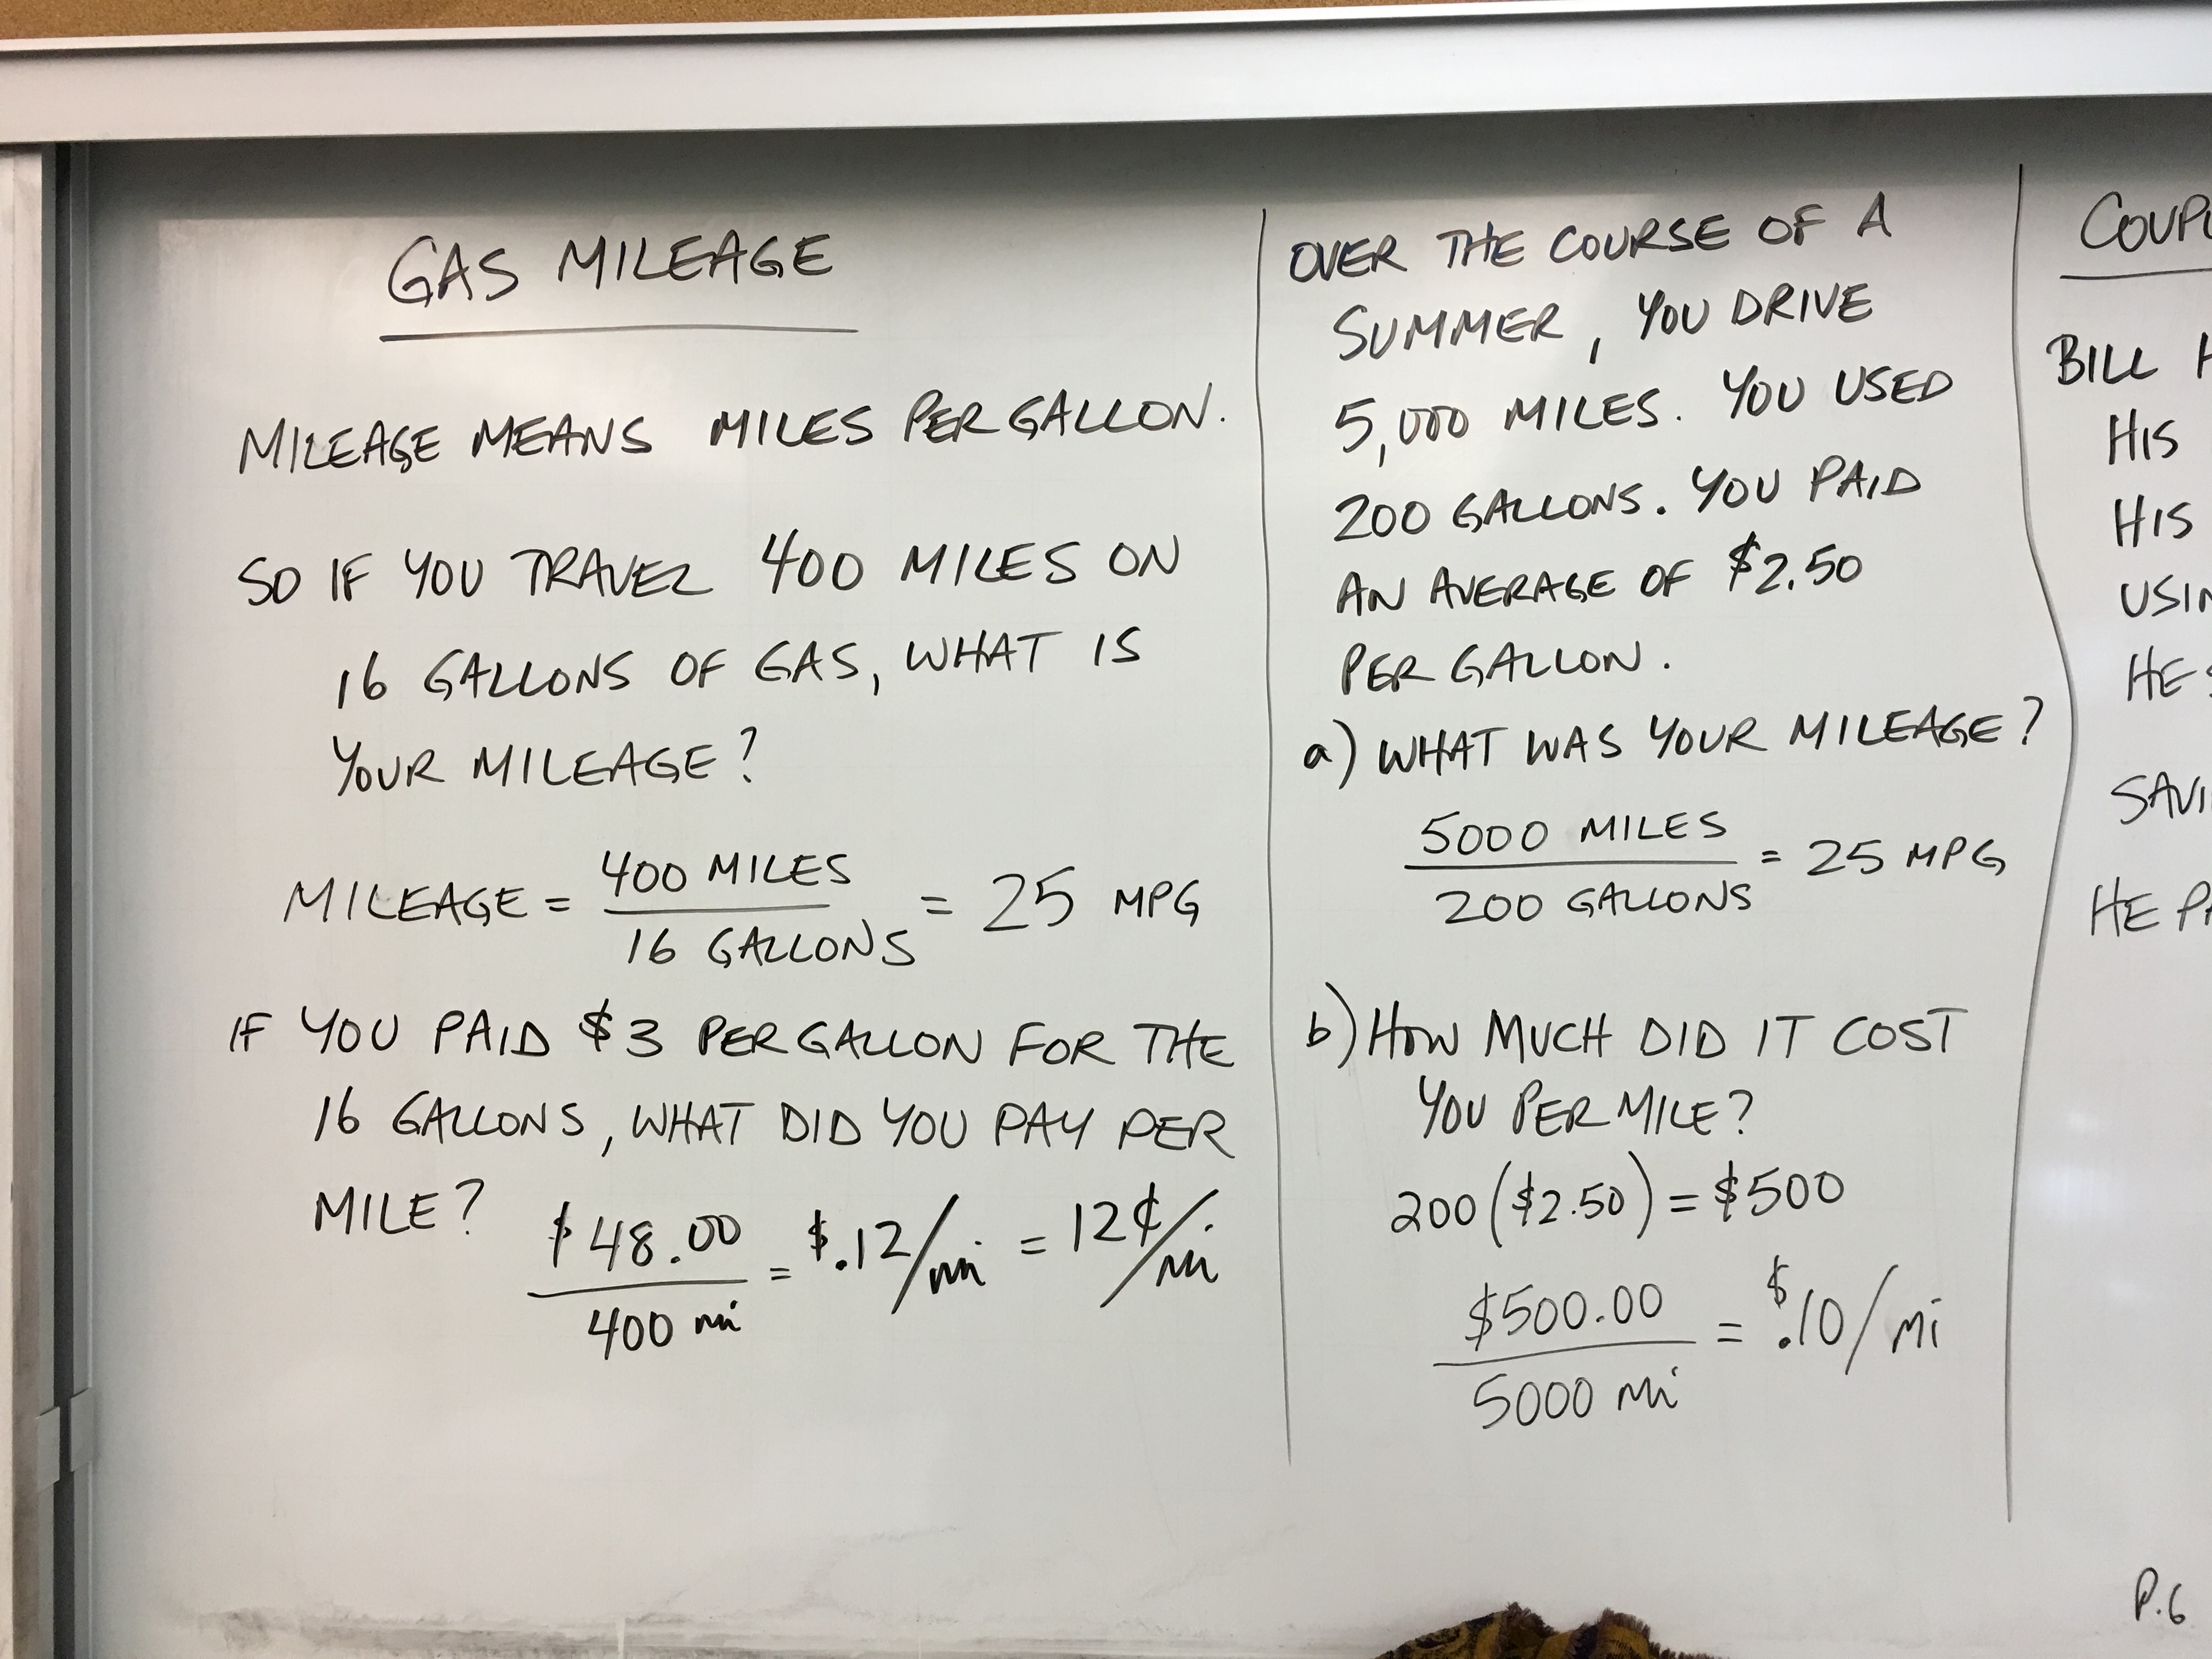 GAS MILEAGE
MILEAGE MEANS MILES PER GALLON.
SO IF YOU TRAVEL 400 MILES ON
16 GALLONS OF GAS, WHAT IS
YOUR MILEAGE?
MILEAGE = 400 MILES / 16 GALLONS = 25 MPG
IF YOU PAID $3 PER GALLON FOR THE
16 GALLONS, WHAT DID YOU PAY PER
MILE?
$48.00 / 400 mi = $.12/mi = 12¢/mi
OVER THE COURSE OF A
SUMMER, YOU DRIVE
5,000 MILES. YOU USED
200 GALLONS. YOU PAID
AN AVERAGE OF $2.50
PER GALLON.
a) WHAT WAS YOUR MILEAGE?
5000 MILES / 200 GALLONS = 25 MPG
b) HOW MUCH DID IT COST
YOU PER MILE?
200($2.50) = $500
$500.00 / 5000 mi = $.10/mi
BILL
HIS
HIS
HE
P.6